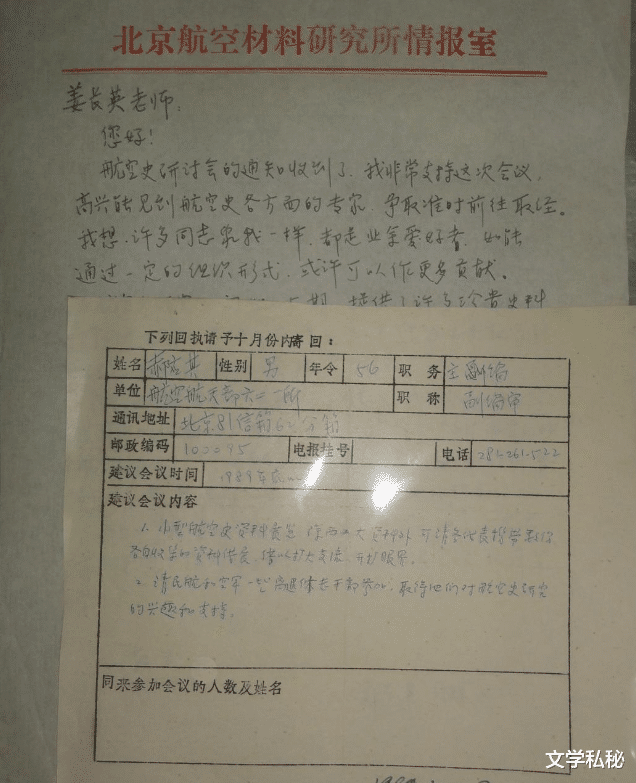 北京航空材料研究所情报室
姜长英老师:
您好!
航空史研讨会的通知收到了,我非常支持这次会议,
高兴能见到航空史各方面的专家,争取准时前往取经。
我想,许多同志象我一样,都是业余爱好者,如能
通过一定的组织形式,或许可以作更多贡献。
提供了许多珍贵史料
下列回执请予十月份内寄回:
姓名 郝应其 性别 男 年令 56 职务 主编
单位 航空航天部六二一所 职称 副编审
通讯地址 北京81信箱62分箱
邮政编码 100095 电报挂号 电话 281-261-522
建议会议时间 1989年
建议会议内容
1. 小型航空史资料展览 除西工大资料外 可请各代表携带
各自收集的资料传底,借以扩大交流,开扩眼界。
2. 请民航和空军一些离退休老干部参加,取得他们对航空史研究
的兴趣和支持。
同来参加会议的人数及姓名
文学私秘